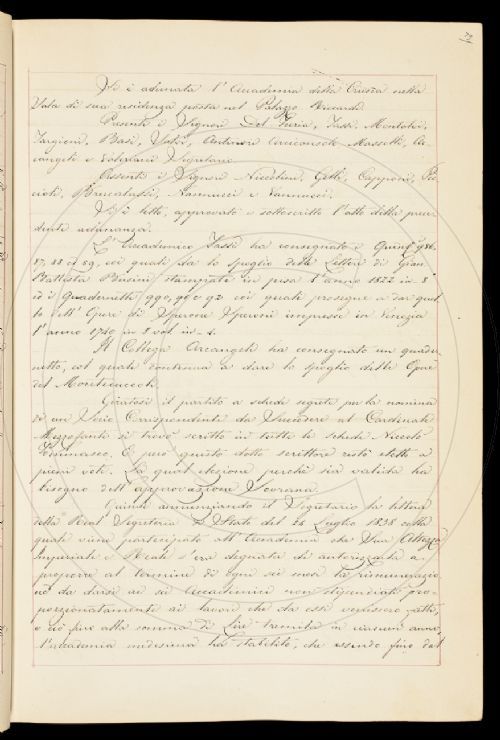 79
Si è adunata l'Accademia della Crusca nella
Sala di sua residenza posta nel Palazzo Riccardi.
Presenti i Signori Del Furia, Tassi, Montalvi,
Targioni, Basi, Antinori Arciconsolo Masselli, Ar-
cangeli e Segretario
Assenti i Signori Niccolini, Gelli, Capponi, Pic-
cioli, Brucalassi, Nannucci e Vannucci.
Si è letto, approvato e sottoscritto l'atto della prece-
dente adunanza.
L'Accademico Tassi ha consegnato i Quin.
87, 88 e 89, coi quali dà lo spoglio delle Lettere di Gian
Battista Busini stampate in pisa l'anno 1822 in 8
ed i Quadernetti 990, 991 92 coi quali prosegue a dar quel-
lo dell'Opere di Sperone Speroni impresse in Venezia
l'anno 1740 in 5 vol. in 4.
Il Collega Arcangeli ha consegnato un quader-
netto, col quale continua a dare lo spoglio delle Opere
del Montecuccoli.
Giratosi il partito a schede segrete per la nomina
di un Socio Corrispondente da succedere al Cardinale
Mezzofanti si trovò scritto in tutte le schede Niccolò
Tommaseo. E però questo dotto scrittore restò eletto a
pieni voti. La qual elezione perchè sia valida ha
bisogno dell'approvazione Sovrana.
Quindi annunziando il Segretario la lettera
della Real Segreteria di Stato del Luglio colla
quale viene partecipato all'Accademia che Sua Altezza
Imperiale e Reale s'era degnata di autorizzarla a
proporre al termine di ogni sei mesi la rimunerazio-
ne da darsi ai suoi Accademici non stipendiati pro-
porzionatamente ai lavori che da essi venissero fatti,
e ciò fino alla somma di Lire tremila in ciascun anno,
l'Accademia medesima ha stabilito, che essendo fino dal